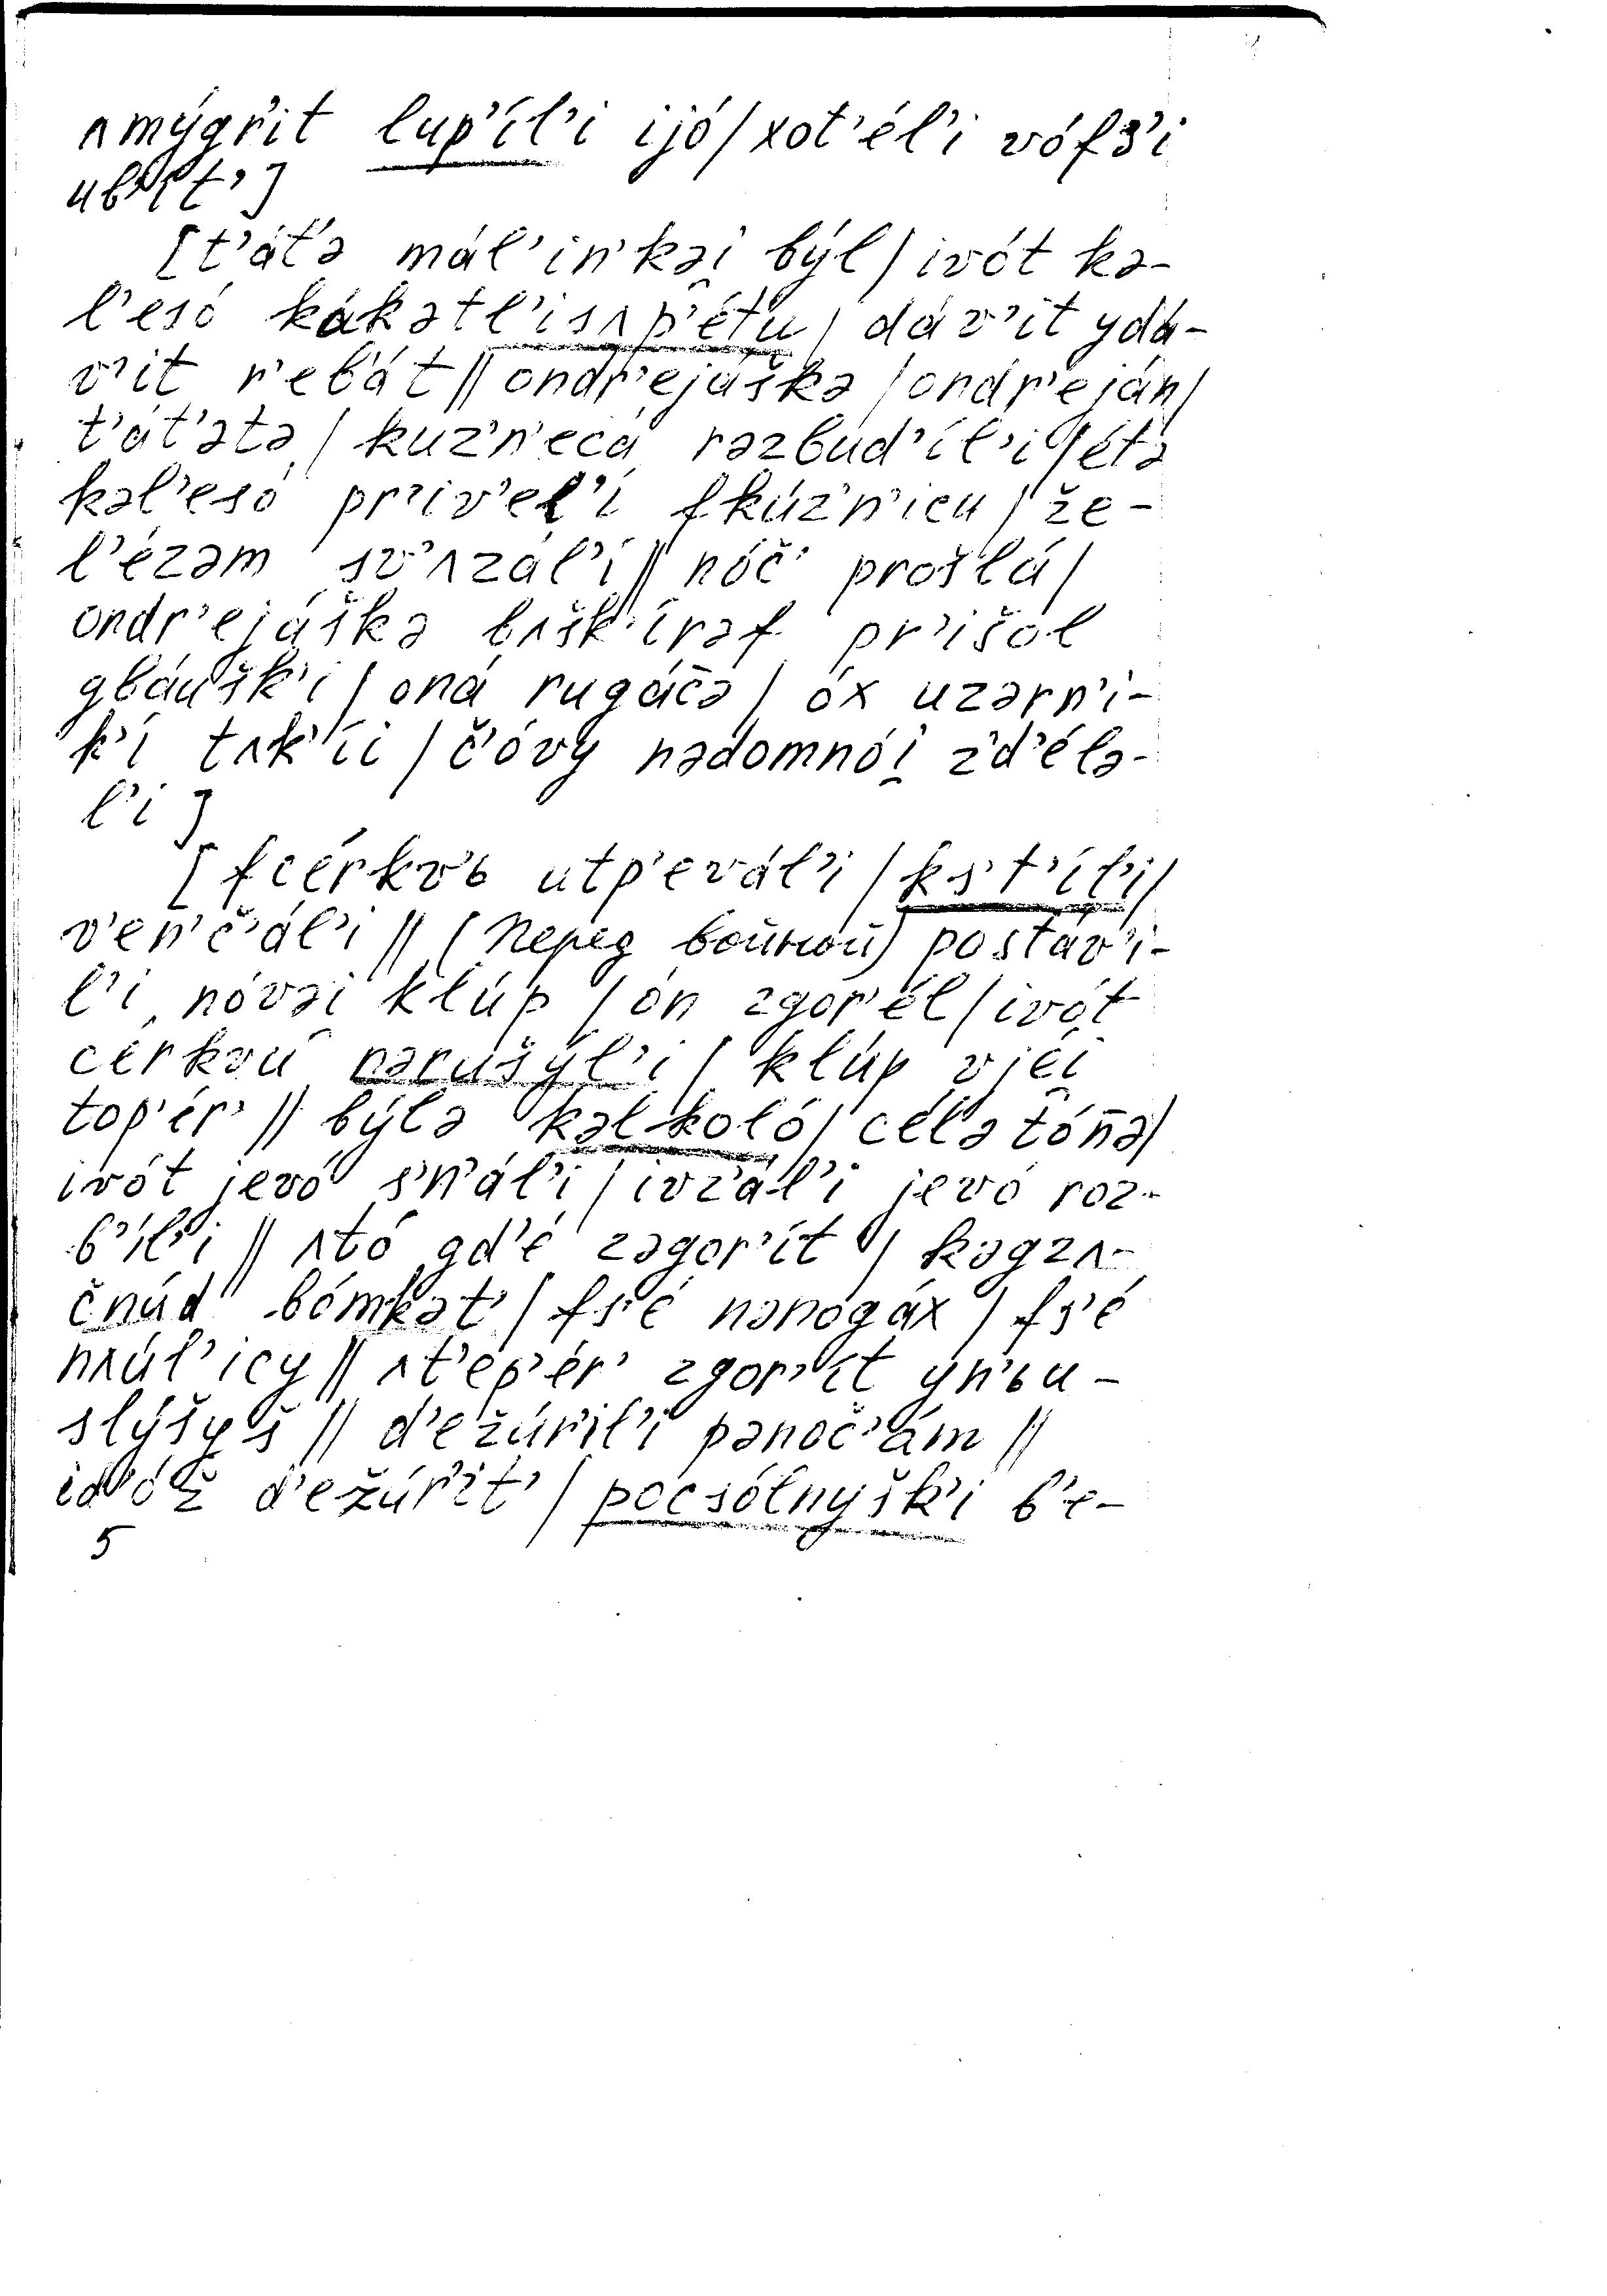 ʌmýgr'it lup'íl'i ijó/xot'él'i vófs'i
ub'ít']
[t'át'ə mál'in'kəi̯ býl/ivót kə-
l'esó kákətl'isʌp'étu/dáv'it ydá-
v'it r'ebát//ondr'ejáškə/ondr'eján/
t'át'ətə/kuz'n'ecá rəzbud'íl'i/étə
kəl'esó pr'iv'el'í fkúz'n'icu/že-
l'ézəm sv'ʌzál'i//nóč' prošlá/
ondr'ejáškə bʌšk'írəf pr'išól
gbáušk'i/oná rugác̄ə/óx uzərn'i-
k'í tʌk'íi/č'óvy nədomnói̯ z'd'élə-
l'i]
[fcérkv'ь utp'evál'i/ks't'íl'i/
v'en'č'ál'i//(перед войной) postáv'i-
l'i nóvəi klúp/ón zgor'él/ivót
cérkvu nərušýl'i/klúp vjéi̯
top'ér'//býlə kəlkoló/célə tón̄ə/
ivót jevó s'n'ál'i/ivz'ál'i jevó roz-
b'íl'i//ʌtó gd'é zəgor'ít/kəgzʌ-
čnúd bómkət'/fs'é nənogáx/fs'é
nʌúl'icy//ʌt'ep'ér' zgor'ít yn'ьu-
slýšyš//d'ežúril'i pənoč'ám//
id'óž d'ežúr'it'/pocsólnyšk'i b'e-
5